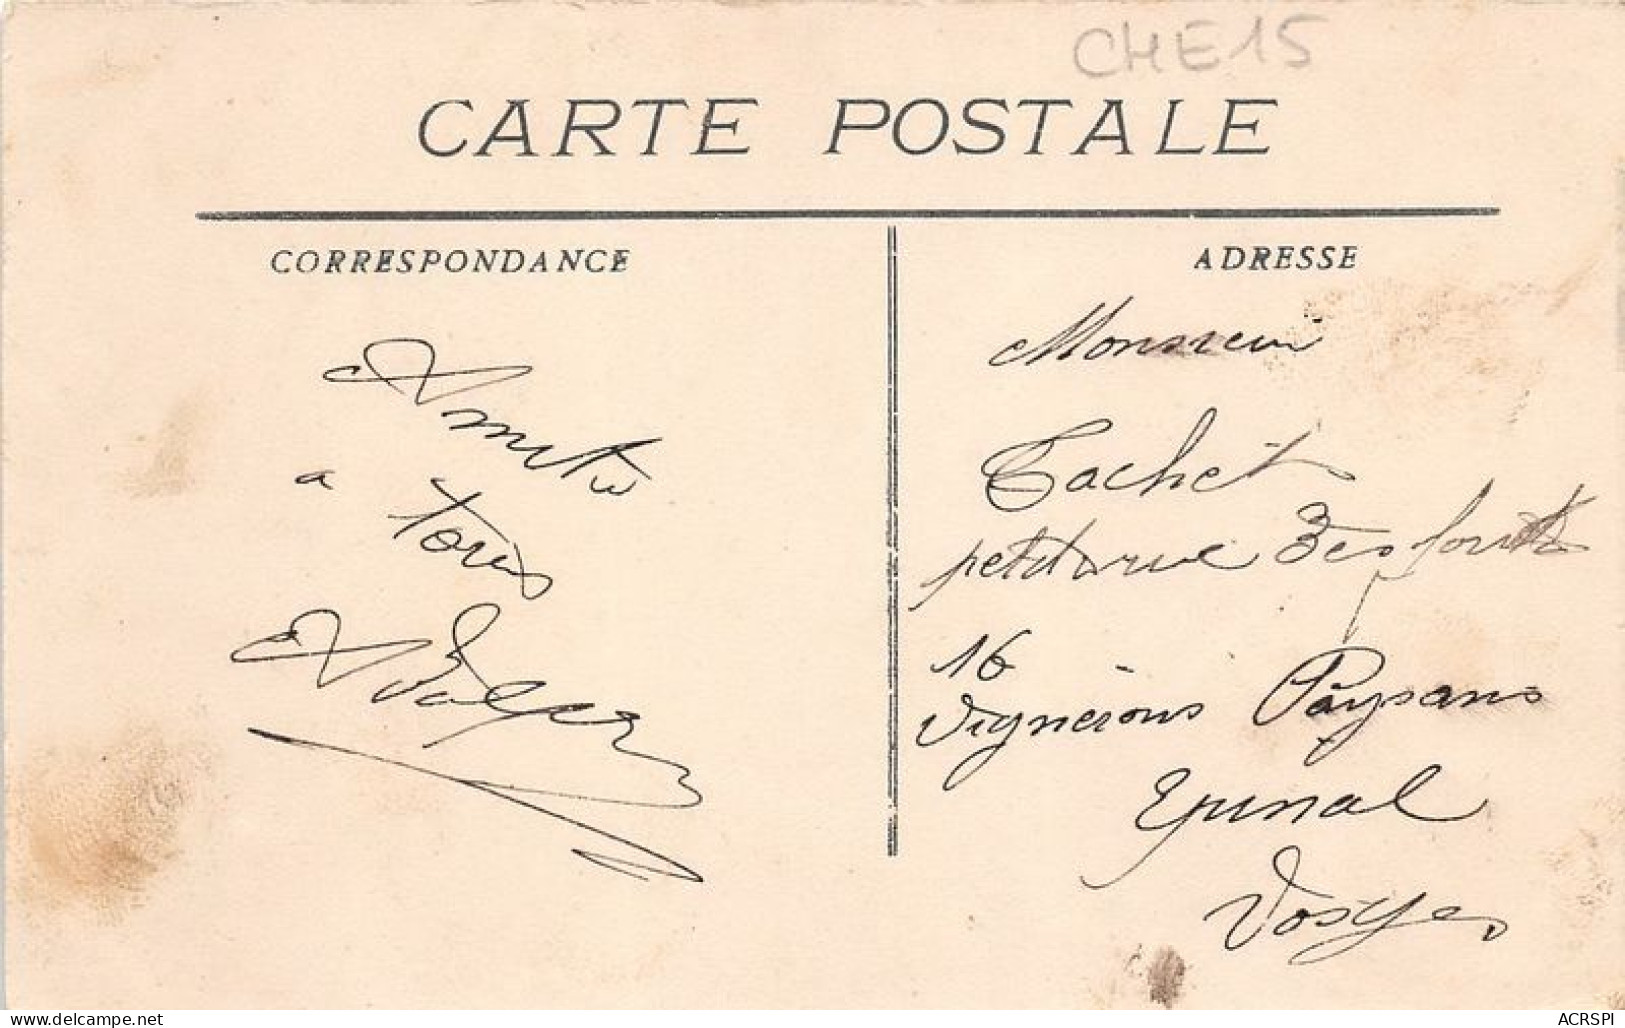 CHE15
CARTE POSTALE
CORRESPONDANCE
Amitié
a tous
ADRESSE
Monsieur
Tachet
petite rue des forts
16
Vignerons Paysans
Epinal
Vosges
www.delcampe.net
ACRSPI